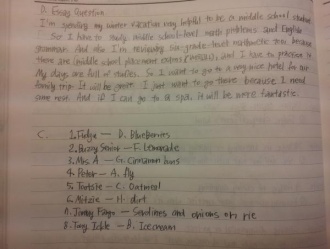 D. Essay Question
I'm spending my winter vacation very helpful to be a middle school student
So I have to study middle school-level math problems and English
grammar. And also I'm reviewing six-grade-level mathematic too because
there are (middle school placement ), and I have to practice is
My days are full of studies. So I want to go to a very nice hotel for our
family trip. It will be great. I just want to go there because I need
some rest. And if I can go to a spa, it will be more fantastic.
C. 1. Fudge — D. Blueberries
2. Buzzy Senior — F. Lemonade
3. Mrs. A — G. Cinnamon buns
4. Peter — A. fly
5. Tootsie — C. Oatmeal
6. Mitzie — H. dirt
7. Jimmy Fargo — Sardines and onions on rye
8. Tiny Idle — B. Ice cream